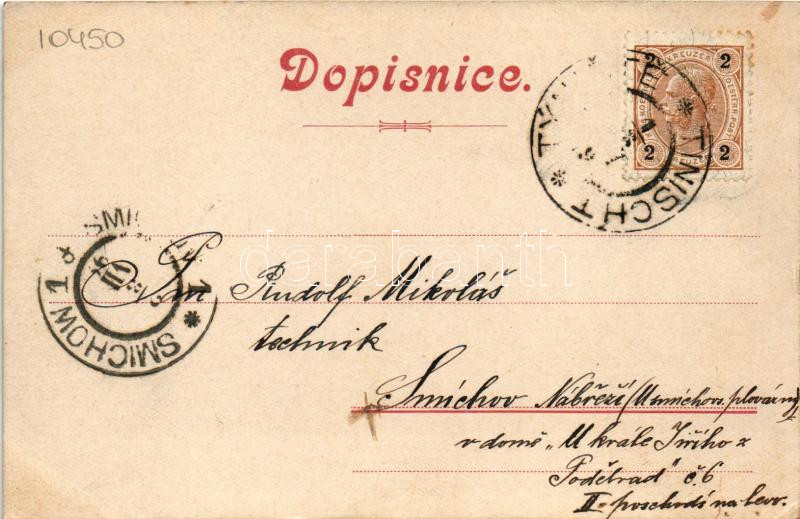 10450
Dopisnice.
2 KREUZER 2
OESTERR. POST
2 KREUZER 2
TINISCHT
SMICHOW 1
Pan Rudolf Mikoláš
technik
Smíchov Nábřeží (U smíchov. plovárny)
v domě „U krále Jiřího z
Poděbrad" č. 6
II. poschodí na levo.
darabanth